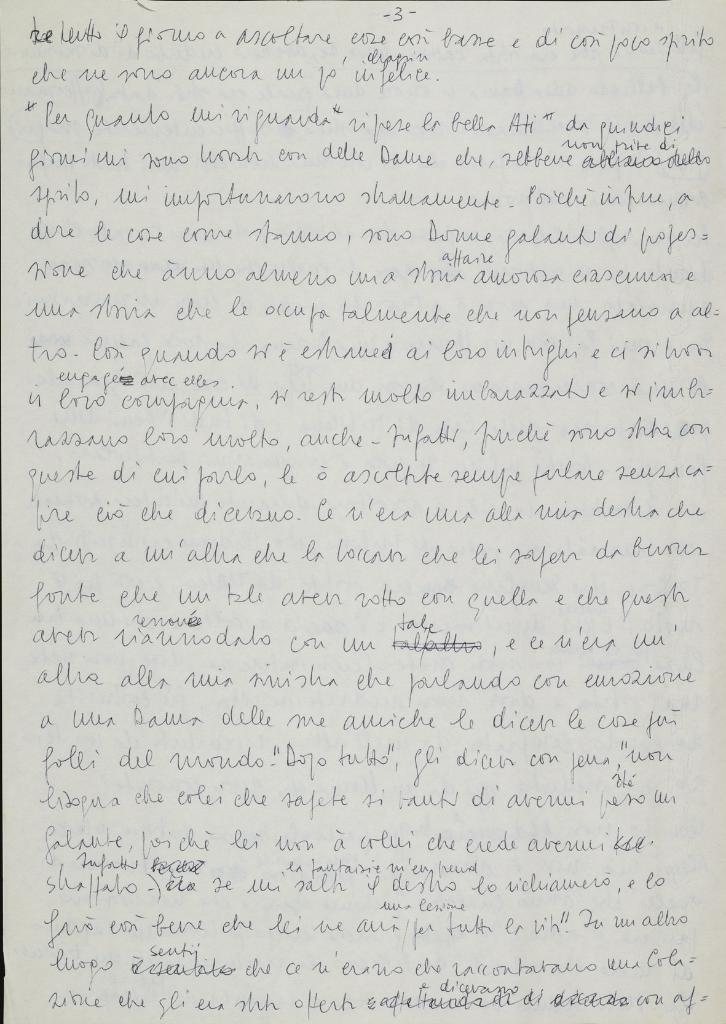 -3-
tutto il giorno a ascoltare cose così basse e di così poco spirito
che ne sono ancora un po' infelice.
chagrin
"Per quanto mi riguarda" riprese la bella Ati "da quindici
non prive di
giorni mi sono trovata con delle Dame che, sebbene abbiano dello
spirito, mi importunarono stranamente. Poiché infine, a
dire le cose come stanno, sono Donne galanti di profes=
affaire
sione che ànno almeno una storia amorosa ciascuna e
una storia che le occupa talmente che non pensano a al=
tro. Così quando si è estranei ai loro intrighi e ci si trova
engagée avec elles
in loro compagnia, si resta molto imbarazzati e si imba-
razzano loro molto, anche. Infatti, poiché sono stata con
queste di cui parlo, le ò ascoltate sempre parlare senza ca=
pire ciò che dicevano. Ce n'era una alla mia destra che
diceva a un'altra che la toccava che lei sapeva da buona
fonte che un tale aveva rotto con quella e che questa
renouée
tale
aveva riannodato con un talaltro, e ce n'era un'
altra alla mia sinistra che parlando con emozione
a una Dama delle sue amiche le diceva le cose più
folli del mondo. "Dopo tutto", gli diceva con pena, "non
ôté
bisogna che colei che sapete si vanti di avermi preso un
galante, poiché lei non à colui che crede avermi
Infatti
la fantaisie m'en prend
strappato se mi salta il destro lo richiamerò, e lo
una lesione
farò così bene che lei ne avrà per tutta la vita". In un altro
sentii
luogo è sentito che ce n'erano che raccontavano una Cola-
e dicevano
zione che gli era stata offerta con af=